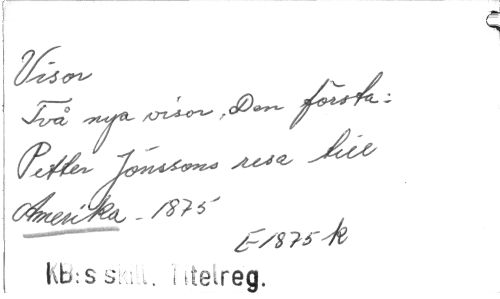 Visor
Två nya visor. Den första:
Petter Jönssons resa till
Amerika - 1875
E1875 k
KB:s skill. Titelreg.